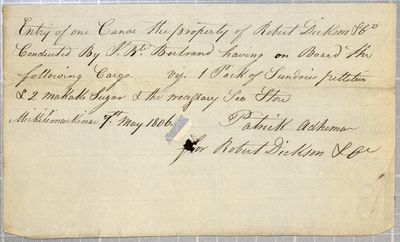 Entry of one Canoe the property of Robert Dickson & Co
Conducted By J. Bte Bertrand having on Board the
following Cargo viz. 1 Pack of Sundries
& 2 makaks Sugar & the necessary Sea Store
Michilimackinac 7th May 1806.
Patrick Adhemar
for Robert Dickson & Co